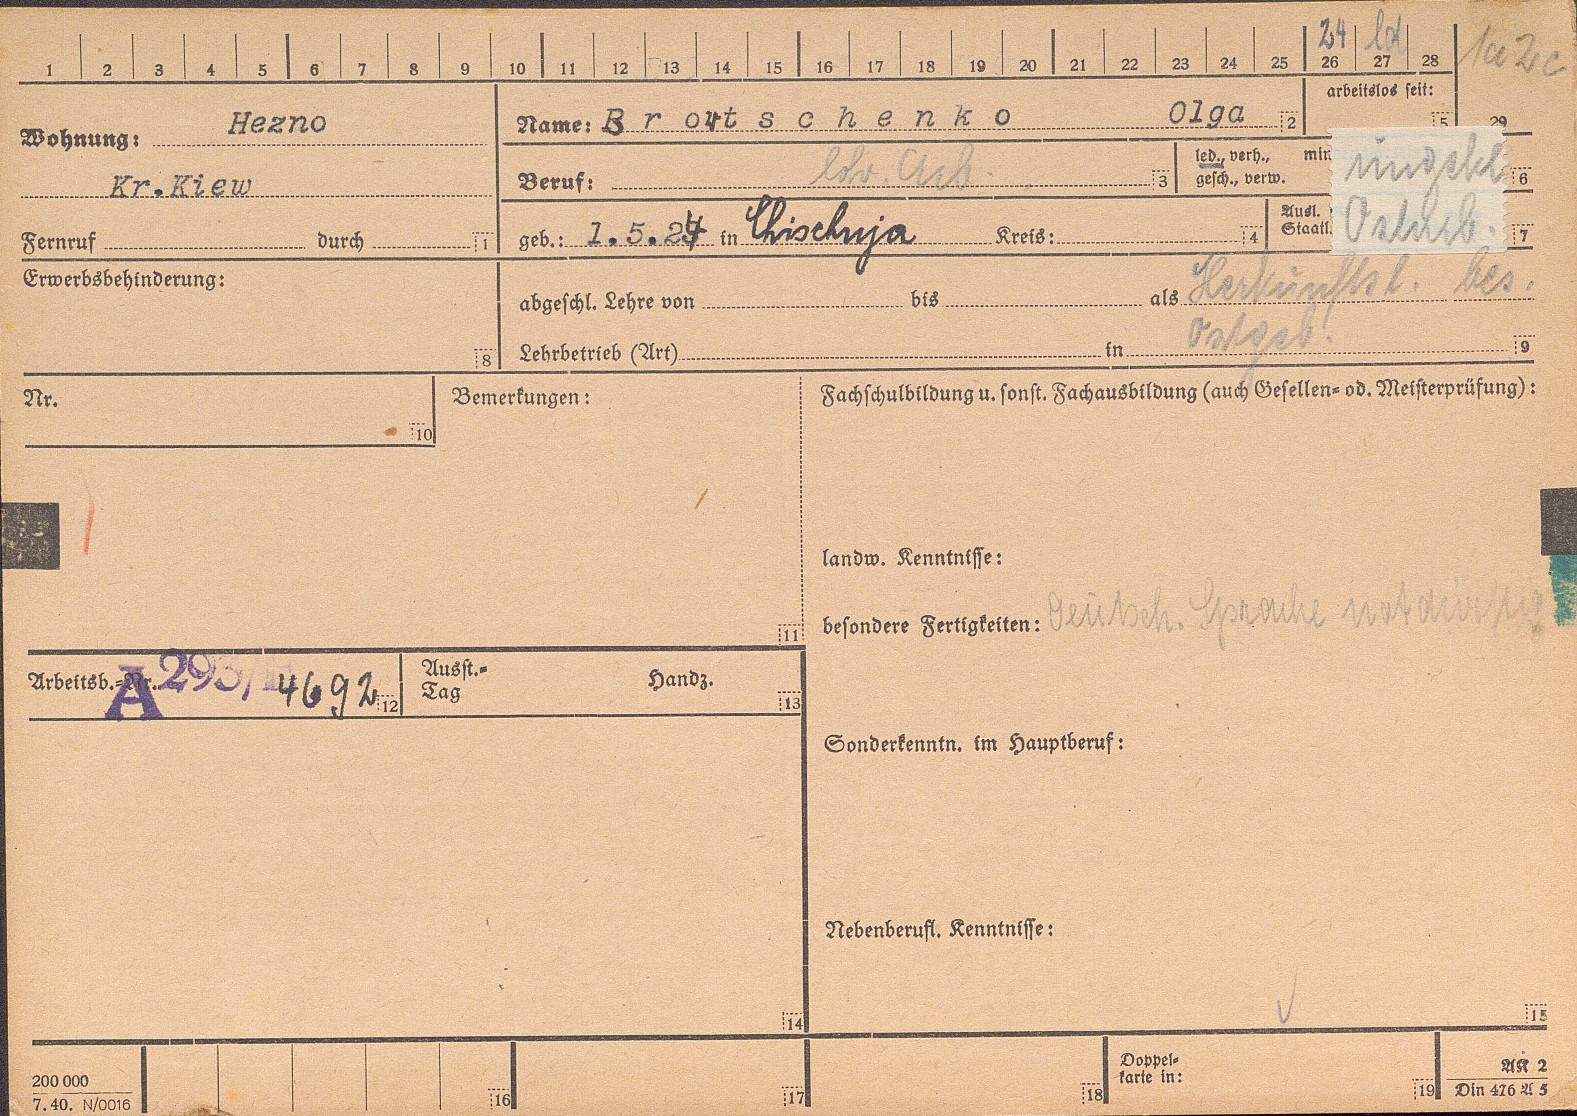 24 ld
1a 2c
1 2 3 4 5 6 7 8 9 10 11 12 13 14 15 16 17 18 19 20 21 22 23 24 25 26 27 28
29
Wohnung: Hezno
Kr.Kiew
Fernruf durch 1
Name: B r o t s c h e n k o Olga 2
arbeitslos seit: 5
Beruf: ldw. Arb. 3
led., verh., min
gesch., verw.
ungekl 6
geb.: 1.5.24 in Chischuja Kreis: 4
Ausl.
Staatl.
Ostarb. 7
Erwerbsbehinderung:
8
abgeschl. Lehre von bis als Herkunftsl. bes.
Ostgeb.
Lehrbetrieb (Art) in 9
Nr.
10
Bemerkungen:
11
Fachschulbildung u. sonst. Fachausbildung (auch Gesellen- od. Meisterprüfung):
landw. Kenntnisse:
besondere Fertigkeiten: Deutsch. Sprache notdürftig
Arbeitsb.-Nr. A 293/ 4692 12
Ausst.-
Tag
Handz.
13
Sonderkenntn. im Hauptberuf:
Nebenberufl. Kenntnisse:
14
15
200 000
7. 40. N/0016
16
17
18
Doppel-
karte in:
19
AK 2
Din 476 A 5